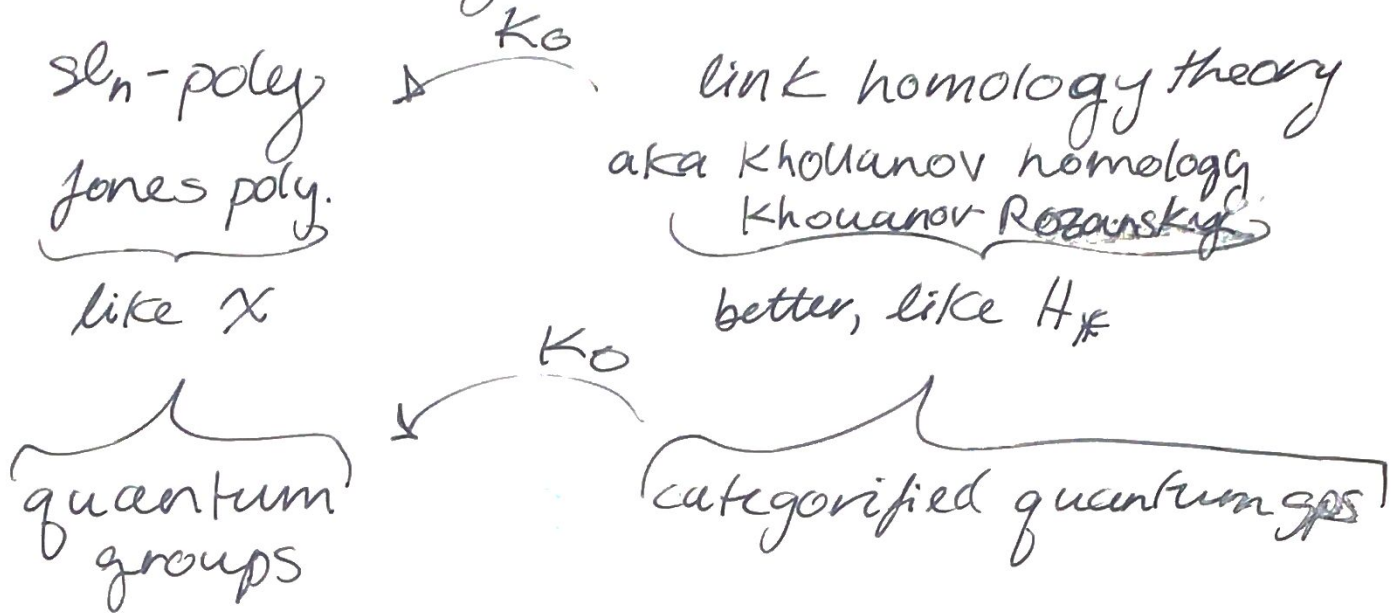 K₀
slₙ-poly link homology theory
Jones poly. aka Khovanov homology
Khovanov-Rozansky
like χ better, like H_*
K₀
quantum categorified quantum gps
groups